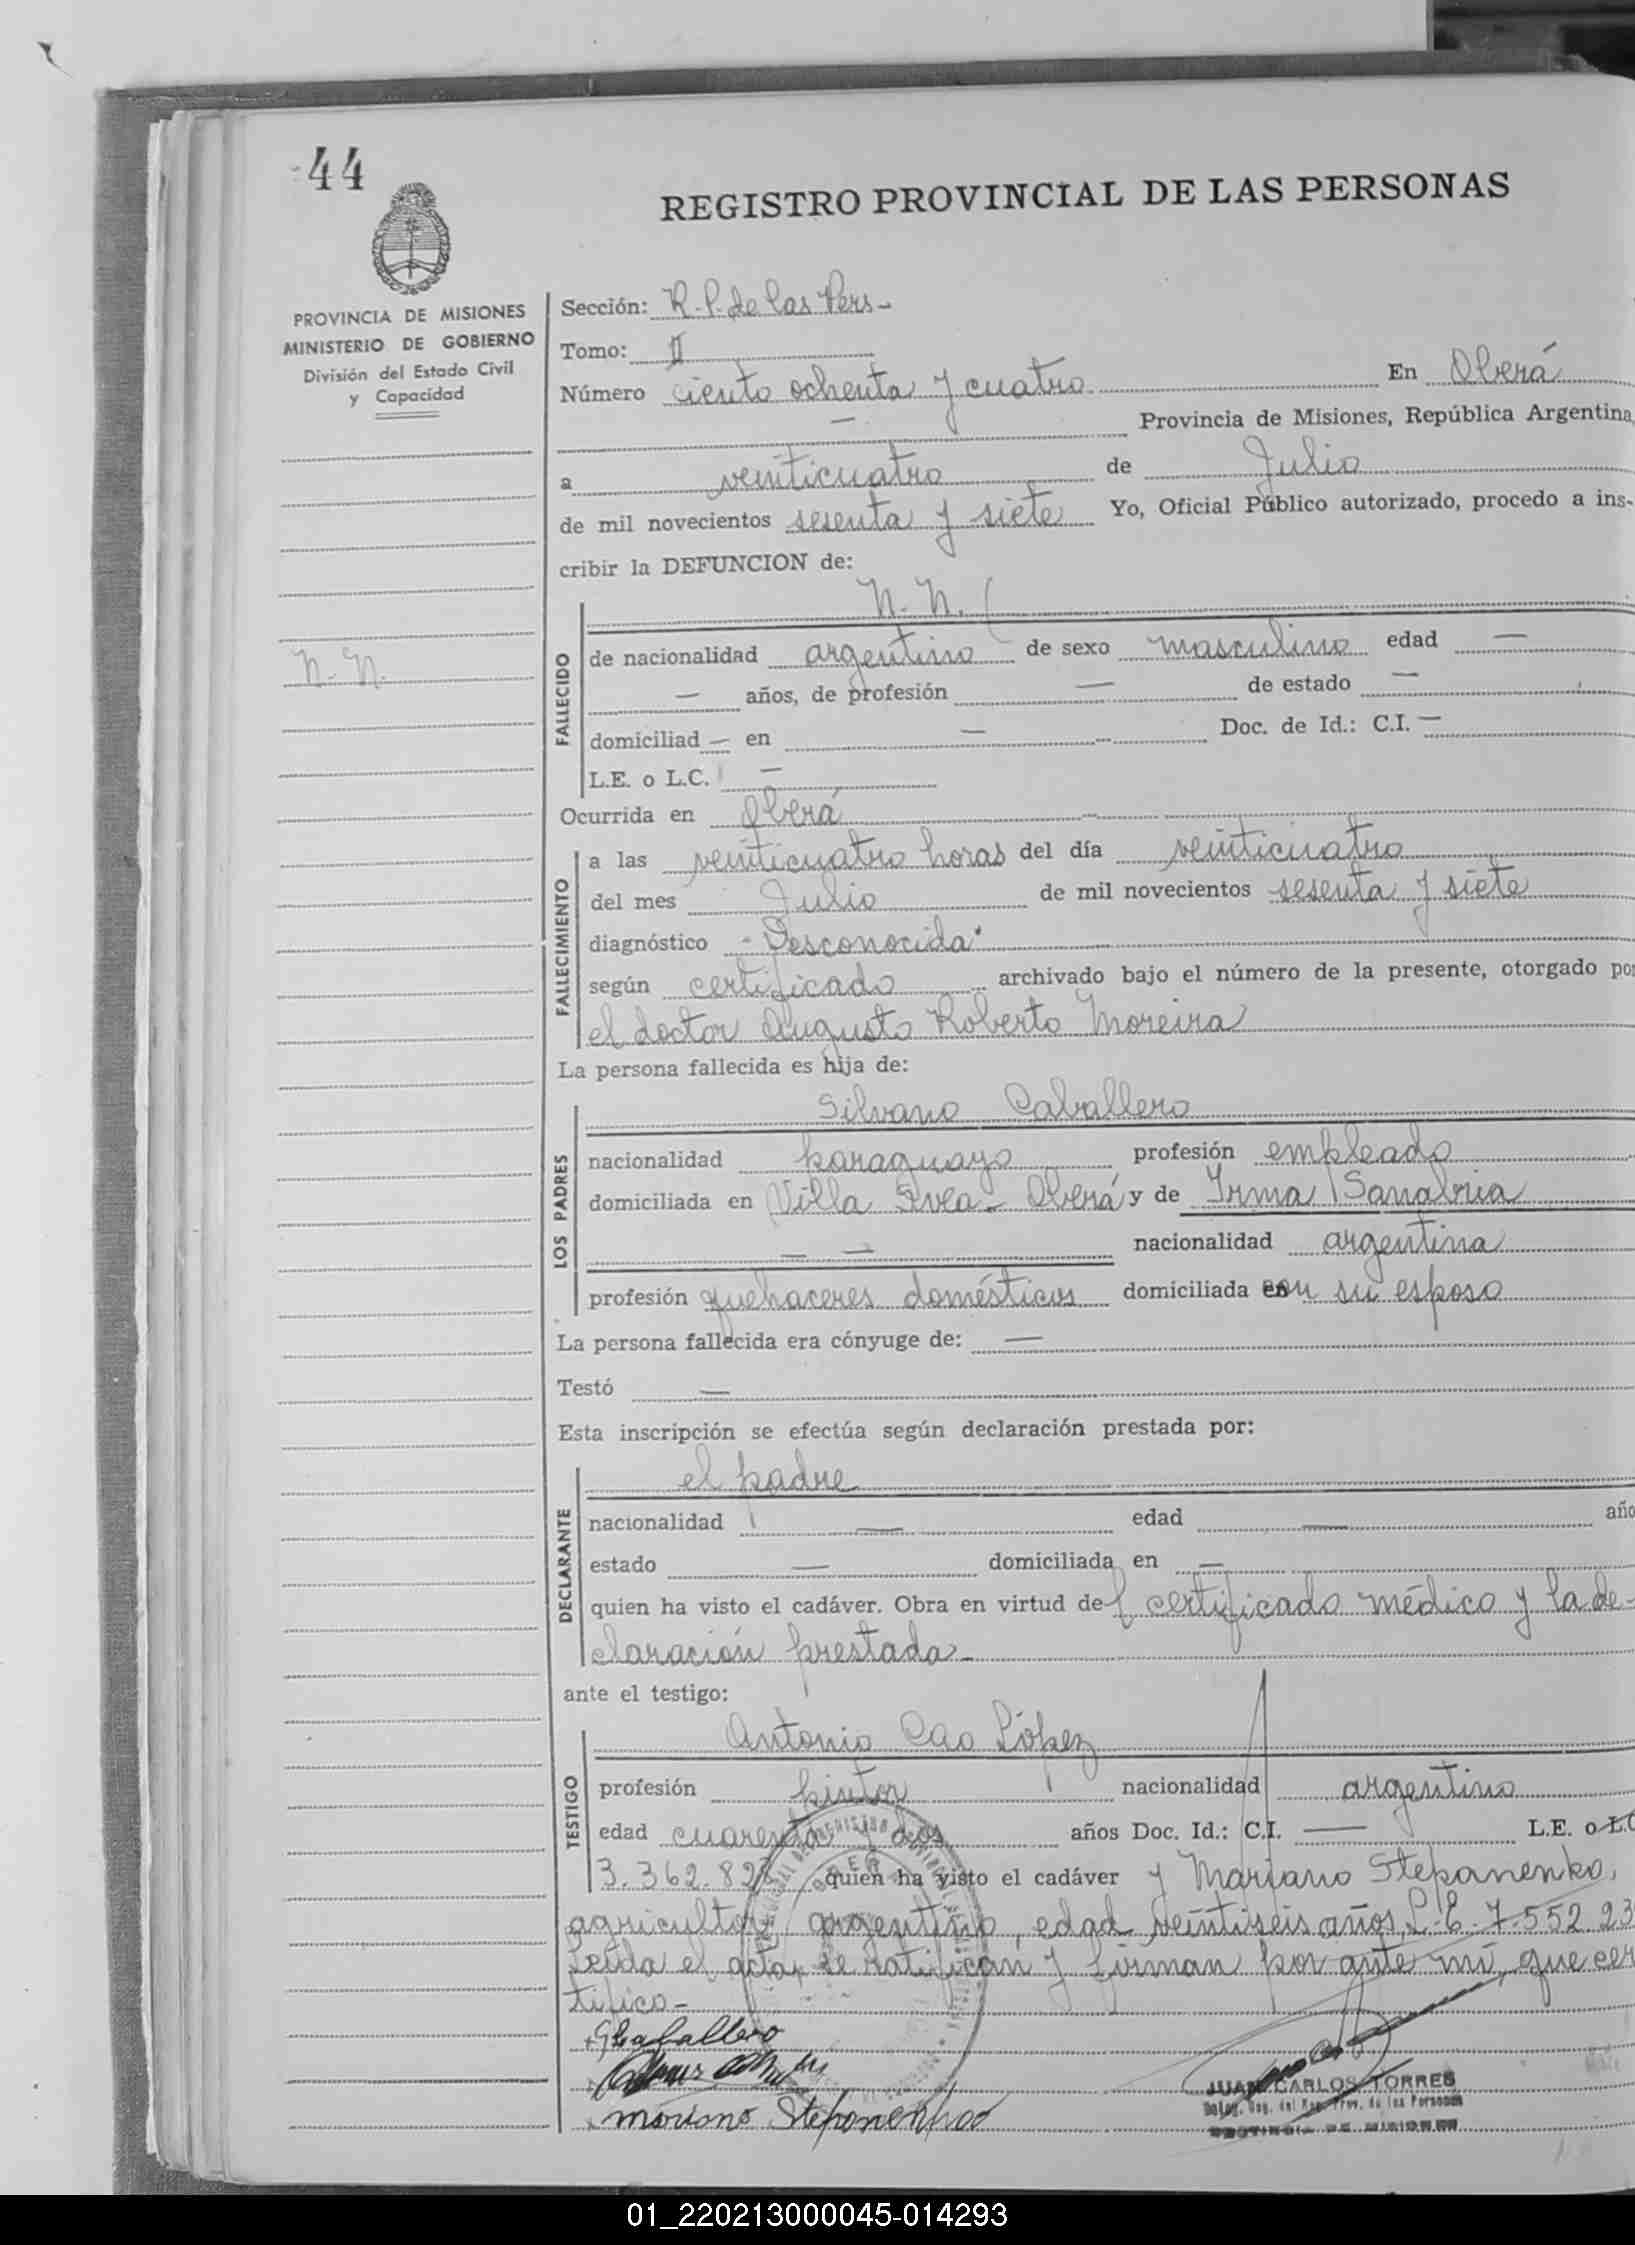 44
REGISTRO PROVINCIAL DE LAS PERSONAS
PROVINCIA DE MISIONES
MINISTERIO DE GOBIERNO
División del Estado Civil
y Capacidad
N. N.
Sección: R. P. de las Pers-
Tomo: II
Número ciento ochenta y cuatro En Oberá
Provincia de Misiones, República Argentina,
a veinticuatro de Julio
de mil novecientos sesenta y siete Yo, Oficial Público autorizado, procedo a ins-
cribir la DEFUNCION de:
N. N. (
FALLECIDO
de nacionalidad argentino de sexo masculino edad —
— años, de profesión — de estado —
domiciliad — en — Doc. de Id.: C.I. —
L.E. o L.C. —
Ocurrida en Oberá
FALLECIMIENTO
a las veinticuatro horas del día veinticuatro
del mes Julio de mil novecientos sesenta y siete
diagnóstico - Desconocida"
según certificado archivado bajo el número de la presente, otorgado por
el doctor Augusto Roberto Moreira
La persona fallecida es hija de:
LOS PADRES
Silvano Caballero
nacionalidad paraguayo profesión empleado
domiciliada en Villa Svea - Oberá y de Irma Sanabria
— — nacionalidad argentina
profesión quehaceres domésticos domiciliada con su esposo
La persona fallecida era cónyuge de: —
Testó —
Esta inscripción se efectúa según declaración prestada por:
DECLARANTE
el padre
nacionalidad — edad — año
estado — domiciliada en —
quien ha visto el cadáver. Obra en virtud del certificado médico y la de-
claración prestada-
ante el testigo:
TESTIGO
Antonio Cao López
profesión pintor nacionalidad argentino
edad cuarenta y dos años Doc. Id.: C.I. — L.E. o L.C
3.362.828 quien ha visto el cadáver y Mariano Stepanenko,
agricultor, argentino, edad veintiseis años, L.E. 7.552.23
Leida el acta, se ratifican y firman por ante mí, que cer
tifico-
Caballero
mariano Steponenkoo
JUAN CARLOS TORRES
Prov. de las Personas
PROVINCIA DE MISIONES
01_220213000045-014293